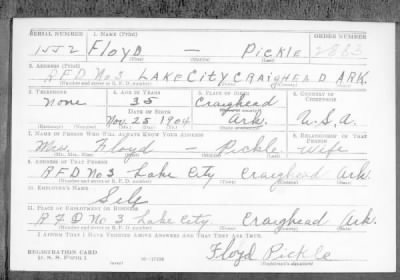 SERIAL NUMBER 1. NAME (Print) ORDER NUMBER
1552 FLOYD — PICKLE 2883
(First) (Middle) (Last)
2. ADDRESS (Print)
RFD No 3 LAKE CITY CRAIGHEAD ARK.
(Number and street or R. F. D. number) (Town) (County) (State)
3. TELEPHONE 4. AGE IN YEARS 5. PLACE OF BIRTH 6. COUNTRY OF CITIZENSHIP
None 35 Craighead
DATE OF BIRTH (Town or county)
Nov. 25 1904 Ark. U.S.A.
(Exchange) (Number) (Mo.) (Day) (Yr.) (State or country)
7. NAME OF PERSON WHO WILL ALWAYS KNOW YOUR ADDRESS 8. RELATIONSHIP OF THAT PERSON
Mrs. Floyd — Pickle Wife
(Mr., Mrs., Miss) (First) (Middle) (Last)
9. ADDRESS OF THAT PERSON
RFD No 3 Lake City Craighead Ark.
(Number and street or R. F. D. number) (Town) (County) (State)
10. EMPLOYER'S NAME
Self
11. PLACE OF EMPLOYMENT OR BUSINESS
RFD No 3 Lake City Craighead Ark.
(Number and street or R. F. D. number) (Town) (County) (State)
I AFFIRM THAT I HAVE VERIFIED ABOVE ANSWERS AND THAT THEY ARE TRUE.
REGISTRATION CARD
D. S. S. Form 1 (over) Floyd Pickle
(Registrant's signature)